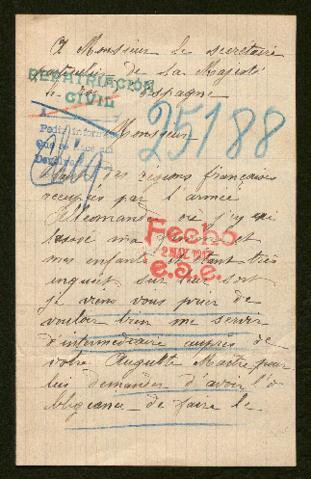 A Monsieur le secrétaire
particulier de Sa Majesté
REPATRIACIÓN
CIVIL
Espagne
25188
Monsieur
des régions françaises
occupées par l'armée
Allemande où j'y ai
laissé ma et
Fecho
2 MAY. 1917
e.a.e.
mes enfants étant très
inquiet sur leur sort
je viens vous prier de
vouloir bien me servir
d'intermédiaire auprès de
votre Auguste Maitre pour
lui demander d'avoir l'o
bligeance de faire le